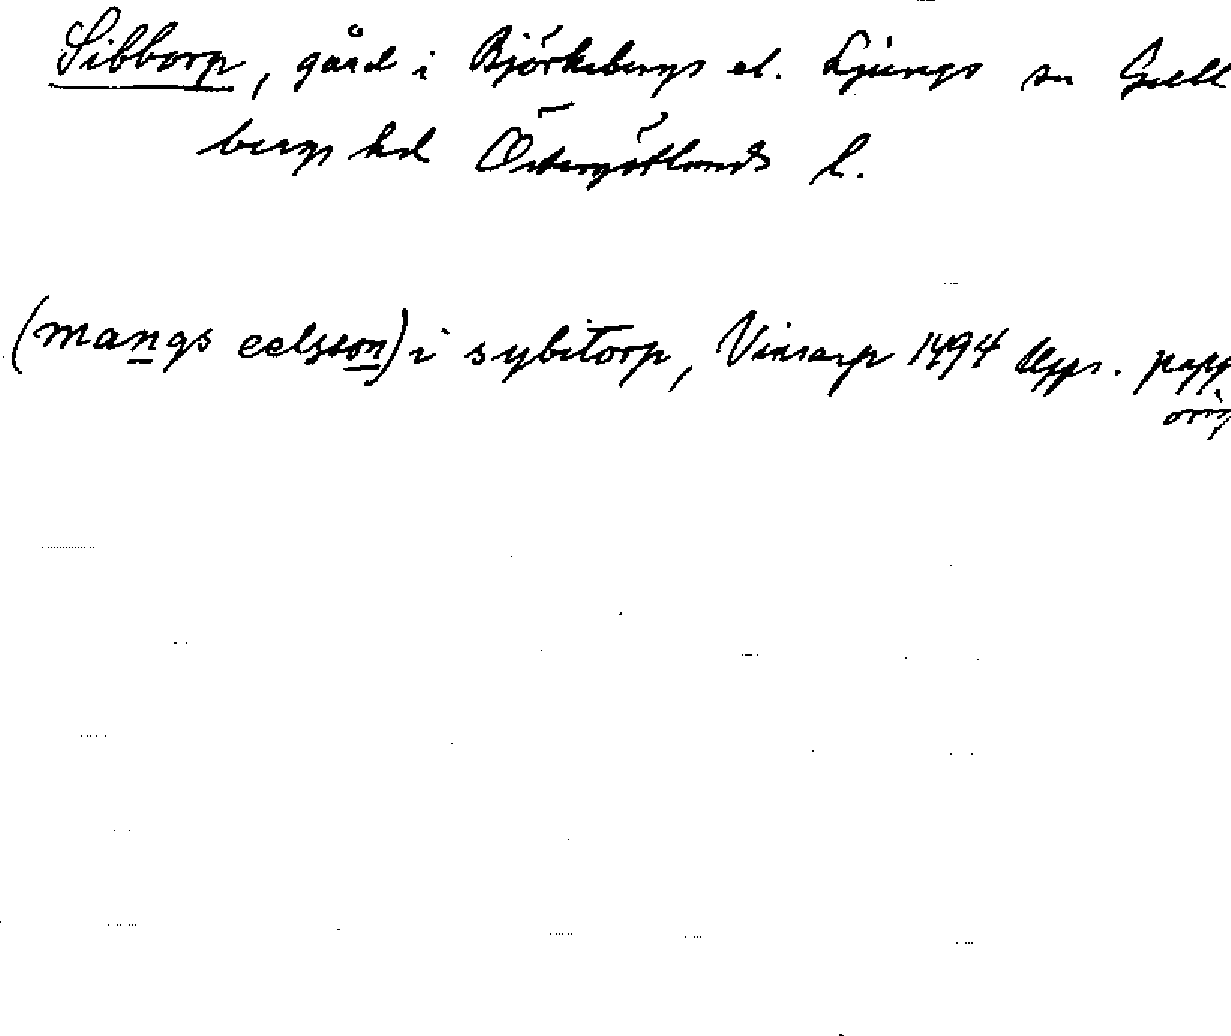 Sibborp, gård i Björkebergs el. Ljungs sn Gull
bergs hd Östergötlands l.
(mangs eelsson) i sybitorp, Vinsarp 1494 Upps. papp
orig